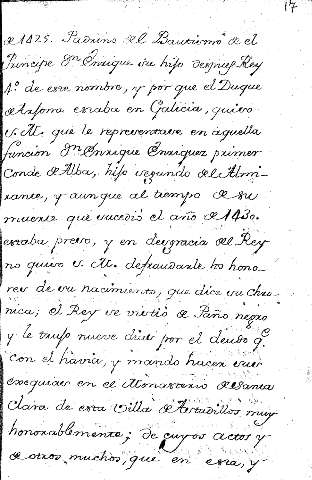 17
de 1425. Padrino de el Bautismo de el
Principe Dn Enrique su hijo despues Rey
4º. de este nombre, y por que el Duque
de Arjona estaba en Galicia, quiso
S. M. que le representase en aquella
funcion Dn Enrique Enriquez primer
Conde de Alba, hijo segundo de el Almi-
rante, y aunque al tiempo de su
muerte que sucedió el año de 1430.
estaba preso, y en desgracia de el Rey
no quiso S. M. defraudarle los hono-
res de su nacimiento, que dice su Chro-
nica; el Rey se vistió de Paño negro
y le trujo nueve dias por el deudo q.e
con el havia, y mando hacer sus
exequias en el Monasterio de Santa
Clara de esta Villa de Astudillos muy
honorablemente; de cuyos actos y
de otros muchos, que en esta, y